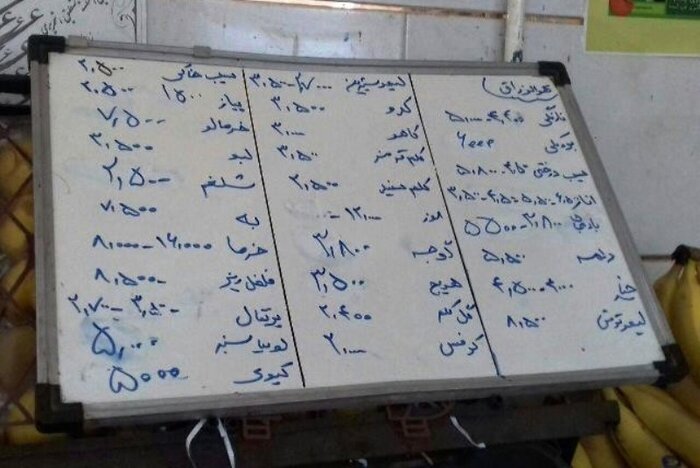 عبدالرزاق
نارنگی ۴,۴۰۰-۵,۰۰۰
۶۰۰۰
سیب درختی ۴,۵۰۰-۵,۸۰۰
انار ۶,۵۰۰-۵,۵۰۰-۴,۵۰۰-۳,۵۰۰
بادمجان ۳,۸۰۰-۵۵۰۰
دلمه ۵,۵۰۰
خیار
لیمو ترش ۸,۵۰۰
لیمو شیرین ۳,۷۰۰-۳,۵۰۰
کدو ۳,۵۰۰
کاهو ۳,۰۰۰
کلم قرمز ۳,۵۰۰
کلم سفید ۳,۵۰۰
موز ۱۲,۰۰۰
گوجه ۳,۸۰۰
هویج ۳,۵۰۰
گل کلم ۲,۴۰۰
کرفس ۳,۰۰۰
سیب خاکی ۲,۵۰۰
پیاز ۱۵۰۰ ۲,۵۰۰
خرمالو ۷,۵۰۰
لبو ۳,۵۰۰
شلغم ۲,۵۰۰
به ۷,۵۰۰
خرما ۱۶,۰۰۰-۸,۰۰۰
فلفل ریز ۸,۵۰۰
پرتقال ۳,۵۰۰-۲,۷۰۰
لوبیا سبز ۵,۰۰۰
کیوی ۵۰۰۰